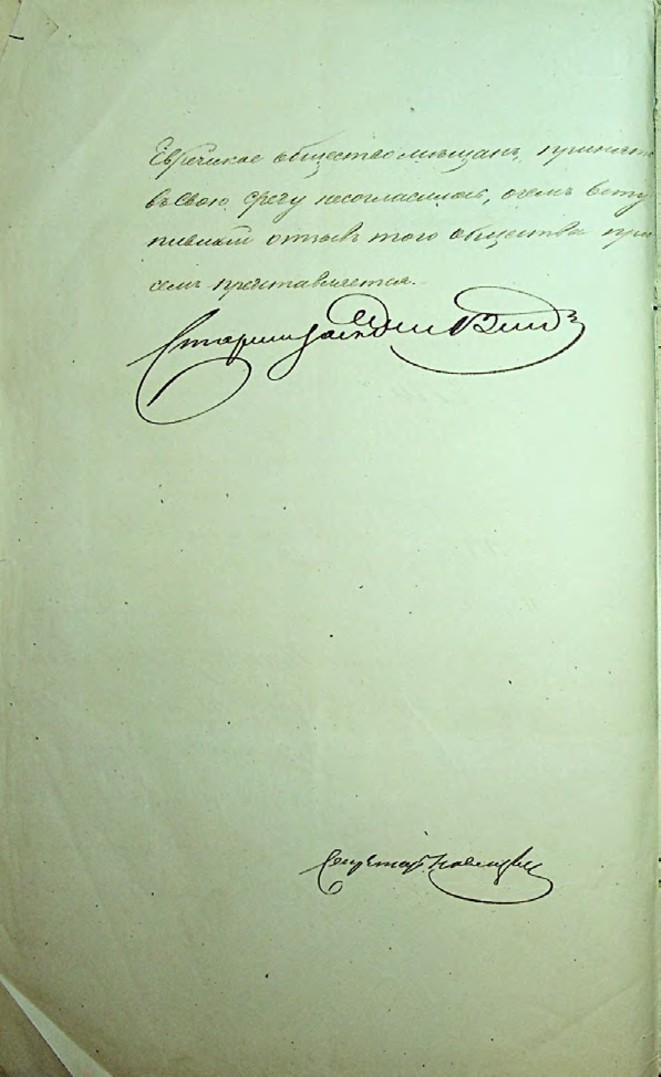 Еврейское общество мещанъ, принять
въ свою среду несогласилось, о чемъ всту
пившій отзывъ того общества при
семъ представляется.
Секретарь